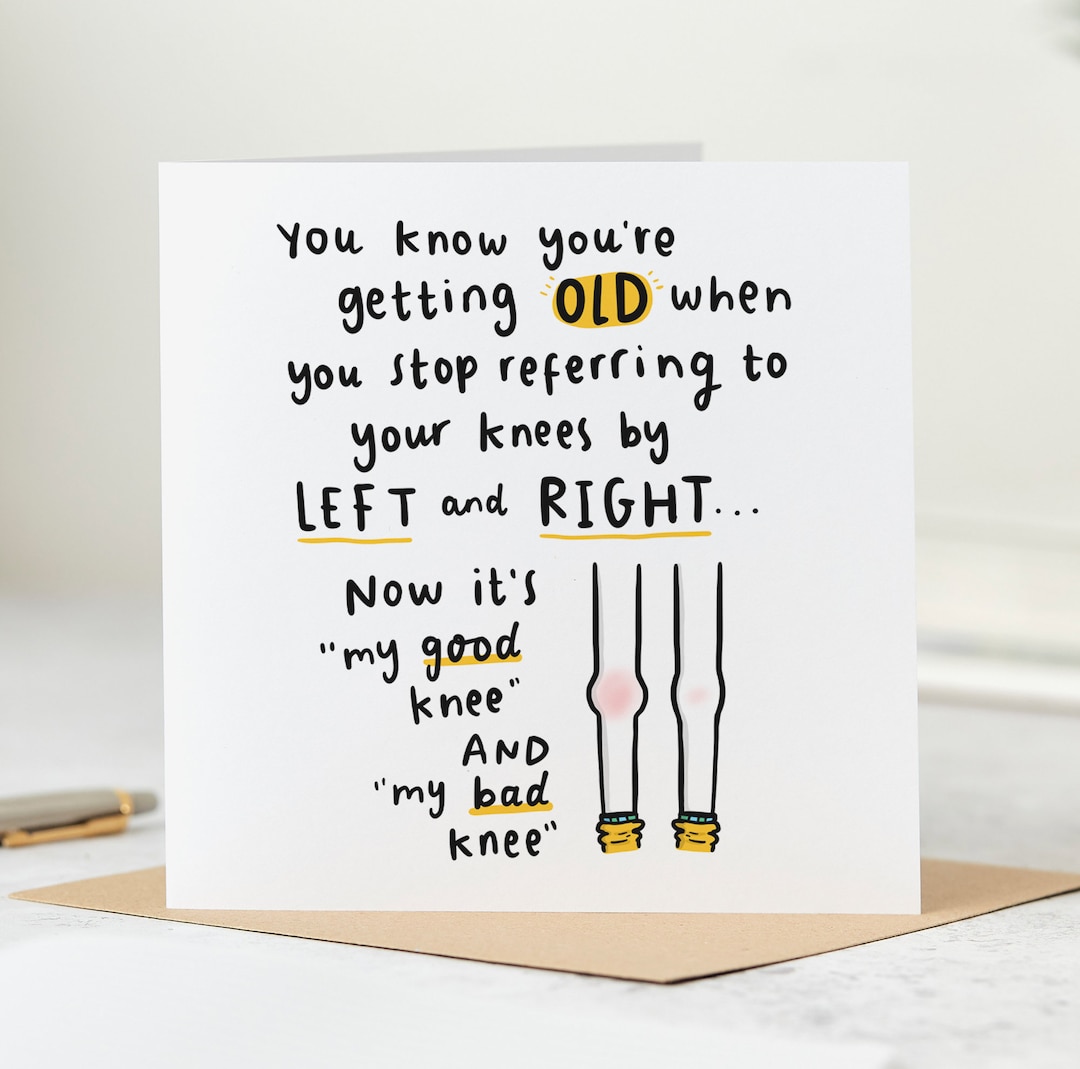 You know you're
getting OLD when
you stop referring to
your knees by
LEFT and RIGHT...
Now it's
"my good
knee"
AND
"my bad
knee"